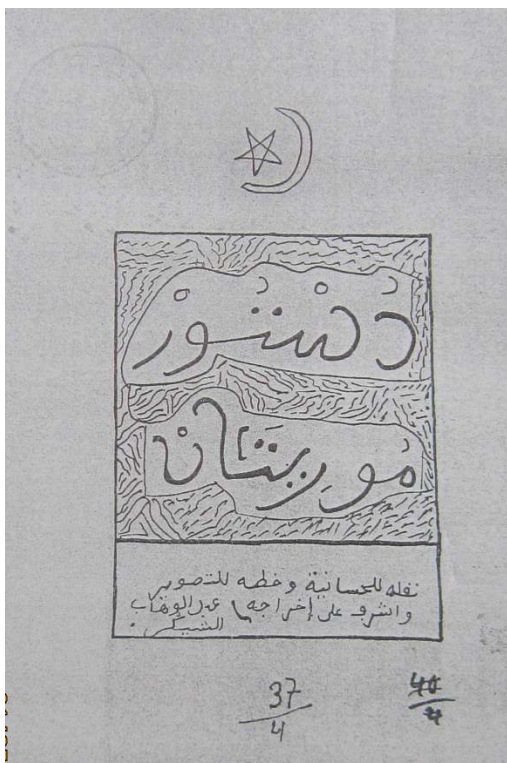 دُسْتُورْ
مُورِيتَانْ
نقله للحسانية وخطه للتصوير
واشرف على إخراجه عبد الوهاب
الشيڭر.
37
4
40
4